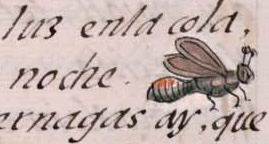 luz enla cola,
noche.
ernagas ay, que